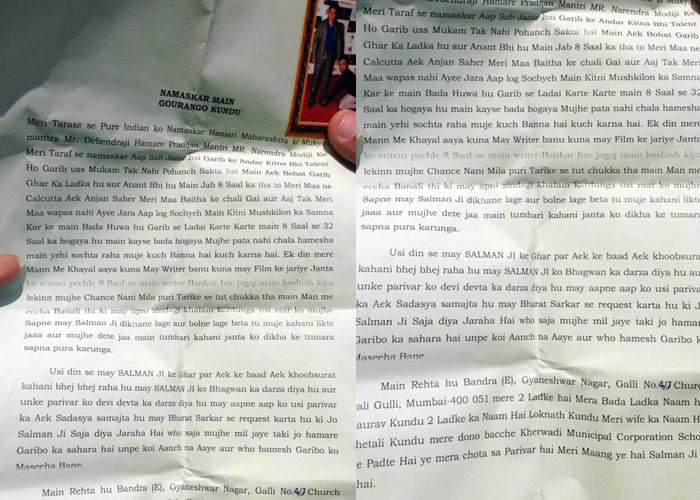 NAMASKAR MAIN
GOURANGO KUNDU
Meri Tarase se Pure Indian ko Namaskar Hamari Maharashtra ki Mukya
mantra Mr. Debendraji Hamare Pradhan Mantri MR. Narendra Modiji Ko
Meri Taraf se namaskar Aap Sab Jante hai Garib ke Andar Kitna Bhi Talent
Ho Garib uss Mukam Tak Nahi Pohanch Sakta hai Main Aek Bohat Garib
Ghar Ka Ladka hu aur Anant Bhi hu Main Jab 8 Saal ka tha to Meri Maa ne
Calcutta Aek Anjan Saher Meri Maa Baitha ke chali Gai aur Aaj Tak Meri
Maa wapas nahi Ayee Jara Aap log Sochyeh Main Kitni Mushkilon ka Samna
Kar ke main Bada Huwa hu Garib se Ladai Karte Karte main 8 Saal se 32
Saal ka hogaya hu main kayse bada hogaya Mujhe pata nahi chala hamesha
main yehi sochta raha muje kuch Banna hai kuch karna hai. Ek din mere
Mann Me Khayal aaya kuna May Writer banu kuna may Film ke jariye Janta
ko sunau pechle 8 Saal se main writer Bankar har jagaj main koshish kiya
lekinn mujhe Chance Nani Mila puri Tarike se tut chukka tha main Man me
eccha Banali thi ki may apni zindagi khatam kardunga usi raat ko mujhe
Sapne may Salman Ji dikhane lage aur bolne lage beta tu muje kahani likte
jaaa aur mujhe dete jaa main tumhari kahani janta ko dikha ke tumara
sapna pura karunga.
Usi din se may SALMAN JI ke Ghar par Aek ke baad Aek khoobsurat
kahani bhej bhej raha hu may SALMAN JI ko Bhagwan ka darza diya hu aur
unke parivar ko devi devta ka darza diya hu may aapne aap ko usi parivar
ka Aek Sadasya samajta hu may Bharat Sarkar se request karta hu ki Jo
Salman Ji Saja diya Jaraha Hai who saja mujhe mil jaye taki jo hamare
Garibo ka sahara hai unpe koi Aanch na Aaye aur who hamesh Garibo ko
Maseeha Bane.
Main Rehta hu Bandra (E), Gyaneshwar Nagar, Galli No.4/7 Church
Debendraji Hamare Pradhan Mantri MR. Narendra Modiji Ko
Meri Taraf se namaskar Aap Sab Jante hai Garib ke Andar Kitna Bhi Talent
Ho Garib uss Mukam Tak Nahi Pohanch Sakta hai Main Aek Bohat Garib
Ghar Ka Ladka hu aur Anant Bhi hu Main Jab 8 Saal ka tha to Meri Maa ne
Calcutta Aek Anjan Saher Meri Maa Baitha ke chali Gai aur Aaj Tak Meri
Maa wapas nahi Ayee Jara Aap log Sochyeh Main Kitni Mushkilon ka Samna
Kar ke main Bada Huwa hu Garib se Ladai Karte Karte main 8 Saal se 32
Saal ka hogaya hu main kayse bada hogaya Mujhe pata nahi chala hamesha
main yehi sochta raha muje kuch Banna hai kuch karna hai. Ek din mere
Mann Me Khayal aaya kuna May Writer banu kuna may Film ke jariye Janta
ko sunau pechle 8 Saal se main writer Bankar har jagaj main koshish kiya
lekinn mujhe Chance Nani Mila puri Tarike se tut chukka tha main Man me
eccha Banali thi ki may apni zindagi khatam kardunga usi raat ko mujhe
Sapne may Salman Ji dikhane lage aur bolne lage beta tu muje kahani likte
jaaa aur mujhe dete jaa main tumhari kahani janta ko dikha ke tumara
sapna pura karunga.
Usi din se may SALMAN JI ke Ghar par Aek ke baad Aek khoobsurat
kahani bhej bhej raha hu may SALMAN JI ko Bhagwan ka darza diya hu aur
unke parivar ko devi devta ka darza diya hu may aapne aap ko usi parivar
ka Aek Sadasya samajta hu may Bharat Sarkar se request karta hu ki J
Salman Ji Saja diya Jaraha Hai who saja mujhe mil jaye taki jo hamar
Garibo ka sahara hai unpe koi Aanch na Aaye aur who hamesh Garibo k
Maseeha Bane.
Main Rehta hu Bandra (E), Gyaneshwar Nagar, Galli No.4/7 Church
ali Gulli, Mumbai-400 051 mere 2 Ladke hai Mera Bada Ladka Naam h
aurav Kundu 2 Ladke ka Naam Hai Loknath Kundu Meri wife ka Naam H
hetali Kundu mere dono bacche Kherwadi Municipal Corporation Scho
e Padte Hai ye mera chota sa Parivar hai Meri Maang ye hai Salman Ji
hai.